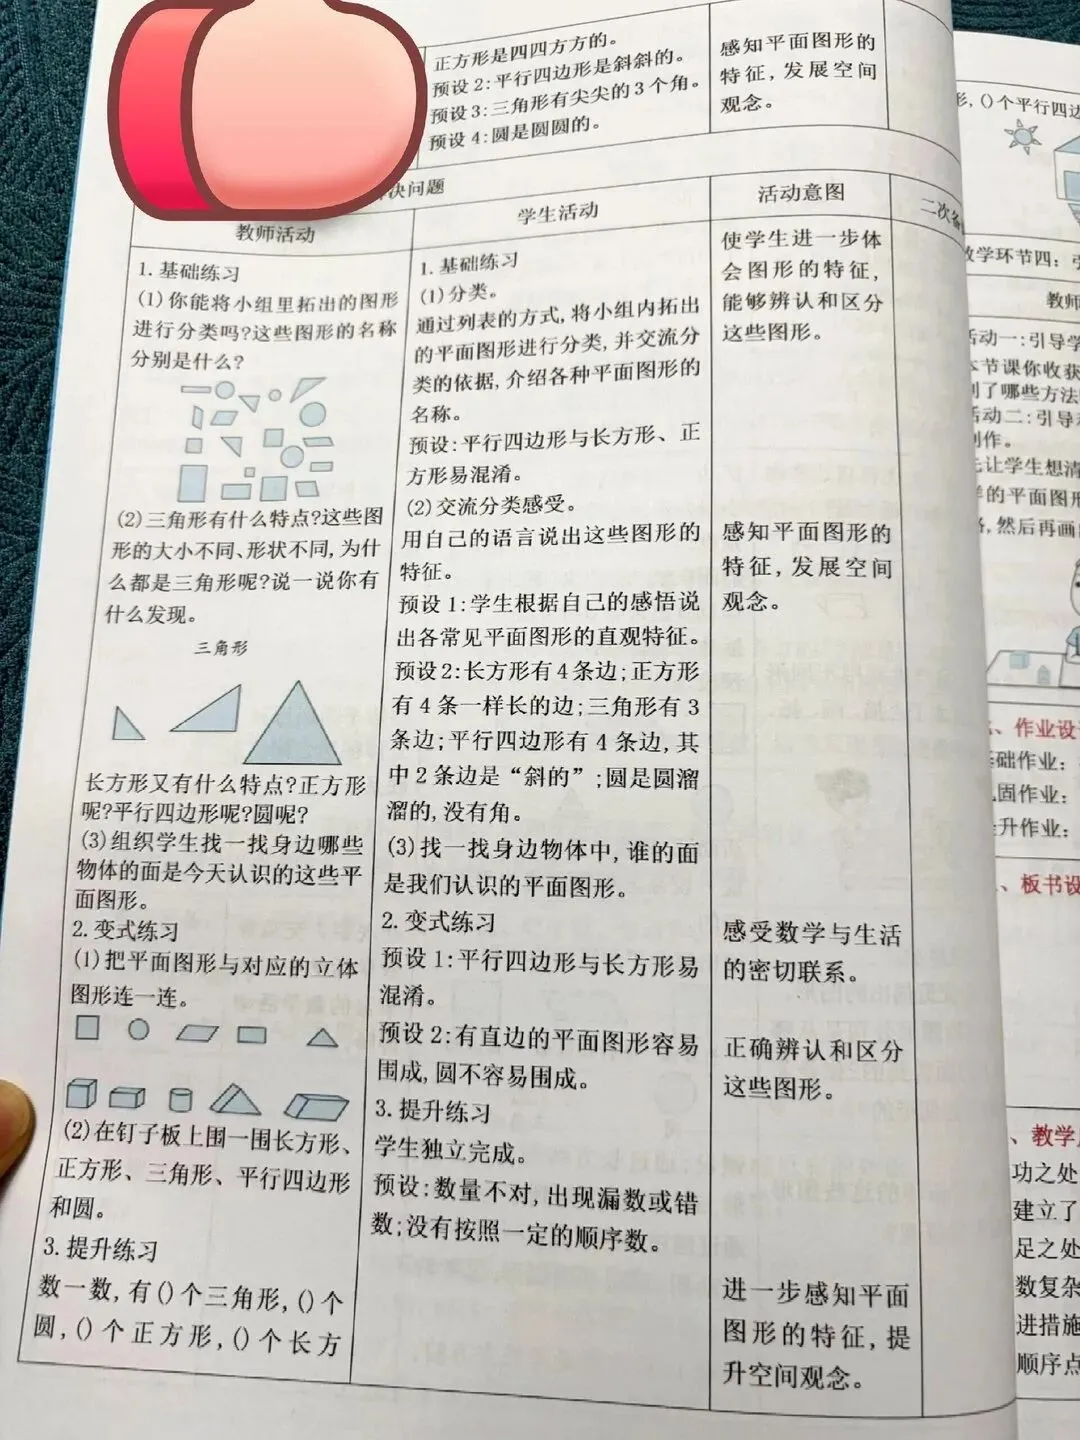 正方形是四四方方的。
预设2:平行四边形是斜斜的。
预设3:三角形有尖尖的3个角。
预设4:圆是圆圆的。
感知平面图形的
特征,发展空间
观念。
决问题
教师活动
学生活动
活动意图
二次备
1.基础练习
(1)你能将小组里拓出的图形
进行分类吗?这些图形的名称
分别是什么?
(2)三角形有什么特点?这些图
形的大小不同、形状不同,为什
么都是三角形呢?说一说你有
什么发现。
三角形
长方形又有什么特点?正方形
呢?平行四边形呢?圆呢?
(3)组织学生找一找身边哪些
物体的面是今天认识的这些平
面图形。
2.变式练习
(1)把平面图形与对应的立体
图形连一连。
(2)在钉子板上围一围长方形、
正方形、三角形、平行四边形
和圆。
3.提升练习
数一数,有()个三角形,()个
圆,()个正方形,()个长方
1.基础练习
(1)分类。
通过列表的方式,将小组内拓出
的平面图形进行分类,并交流分
类的依据,介绍各种平面图形的
名称。
预设:平行四边形与长方形、正
方形易混淆。
(2)交流分类感受。
用自己的语言说出这些图形的
特征。
预设1:学生根据自己的感悟说
出各常见平面图形的直观特征。
预设2:长方形有4条边;正方形
有4条一样长的边;三角形有3
条边;平行四边形有4条边,其
中2条边是“斜的”;圆是圆溜
溜的,没有角。
(3)找一找身边物体中,谁的面
是我们认识的平面图形。
2.变式练习
预设1:平行四边形与长方形易
混淆。
预设2:有直边的平面图形容易
围成,圆不容易围成。
3.提升练习
学生独立完成。
预设:数量不对,出现漏数或错
数;没有按照一定的顺序数。
使学生进一步体
会图形的特征,
能够辨认和区分
这些图形。
感知平面图形的
特征,发展空间
观念。
感受数学与生活
的密切联系。
正确辨认和区分
这些图形。
进一步感知平面
图形的特征,提
升空间观念。
形,()个平行四边
教学环节四:引
教师
活动一:引导学
本节课你收获
到了哪些方法
活动二:引导
制作。
先让学生想清
样的平面图形
,然后再画
、作业设
基础作业:
巩固作业:
提升作业:
、板书设
、教学
功之处
建立了
足之处
数复杂
进措施
顺序点